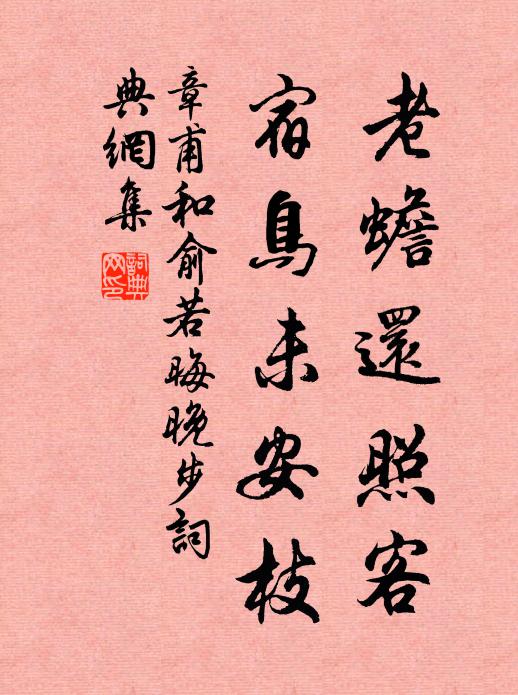 老蟾還照客
宿鳥未安枝
章甫和俞若晦晚步詞
典網集
詞典網印